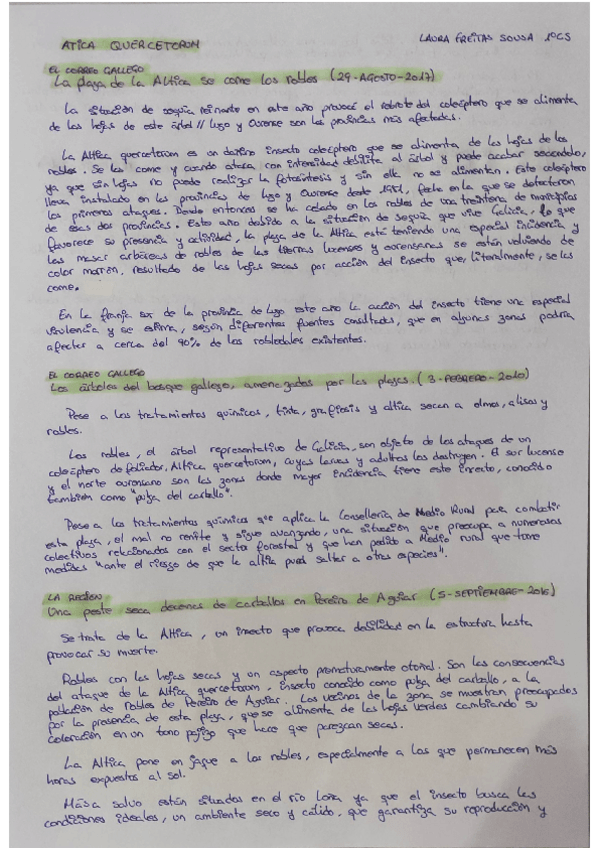 ATICA QUERCETORUM
LAURA FREITAS SOUSA 1ºCS
EL CORREO GALLEGO
La plaga de la Altica se come los robles (29-AGOSTO-2017)
La situación de sequía reinante en este año provocó el rebrote del coleóptero que se alimenta
de las hojas de este árbol // Lugo y Ourense son las provincias más afectadas.
La Altica quercetorum es un dañino insecto coleóptero que se alimenta de las hojas de los
robles. Se las come y cuando ataca con intensidad debilita al árbol y puede acabar secándolo,
ya que sin hojas no puede realizar la fotosíntesis y sin ella no se alimentan. Este coleóptero
lleva instalado en las provincias de Lugo y Ourense desde, fecha en la que se detectaron
los primeros ataques. Desde entonces se ha cebado en los robles de una treintena de municipios
de esas dos provincias. Este año debido a la situación de sequía que vive Galicia, lo que
favorece su presencia y actividad, la plaga de la Altica está teniendo una especial incidencia y
las masas arbóreas de robles de las tierras lucenses y ourensanas se están volviendo de
color marrón, resultado de las hojas secas por acción del insecto que, literalmente, se las
come.
En la franja sur de la provincia de Lugo este año la acción del insecto tiene una especial
virulencia y se estima, según diferentes fuentes consultadas, que en algunas zonas podría
afectar a cerca del 90% de los robledales existentes.
EL CORREO GALLEGO
Los árboles del bosque gallego, amenazados por las plagas. (3-FEBRERO-2010)
Pese a los tratamientos químicos, tinta, grafiosis y altica secan a olmos, alisos y
robles.
Los robles, el árbol representativo de Galicia, son objeto de los ataques de un
coleóptero defoliador, Altica quercetorum, cuyas larvas y adultos los destruyen. El sur lucense
y el norte ourensano son las zonas donde mayor incidencia tiene este insecto, conocido
también como "pulga del carballo".
Pese a los tratamientos químicos que aplica la Consellería de Medio Rural para combatir
esta plaga, el mal no remite y sigue avanzando, una situación que preocupa a numerosos
colectivos relacionados con el sector forestal y que han pedido a Medio rural que tome
medidas "ante el riesgo de que la altica pueda saltar a otras especies".
LA REGIÓN
Una peste seca decenas de carballos en Pereiro de Aguiar (5-SEPTIEMBRE-2016)
Se trata de la Altica, un insecto que provoca debilidad en la estructura hasta
provocar su muerte.
Robles con las hojas secas y un aspecto prematuramente otoñal. Son las consecuencias
del ataque de la Altica quercetorum, insecto conocido como pulga del carballo, a la
población de robles de Pereiro de Aguiar. Los vecinos de la zona se muestran preocupados
por la presencia de esta plaga, que se alimenta de las hojas verdes cambiando su
coloración en un tono pajizo que hace que parezcan secas.
La Altica pone en jaque a los robles, especialmente a los que permanecen más
horas expuestos al sol.
Más a salvo están situados en el río Loña ya que el insecto busca las
condiciones ideales, un ambiente seco y cálido, que garantiza su reproducción y